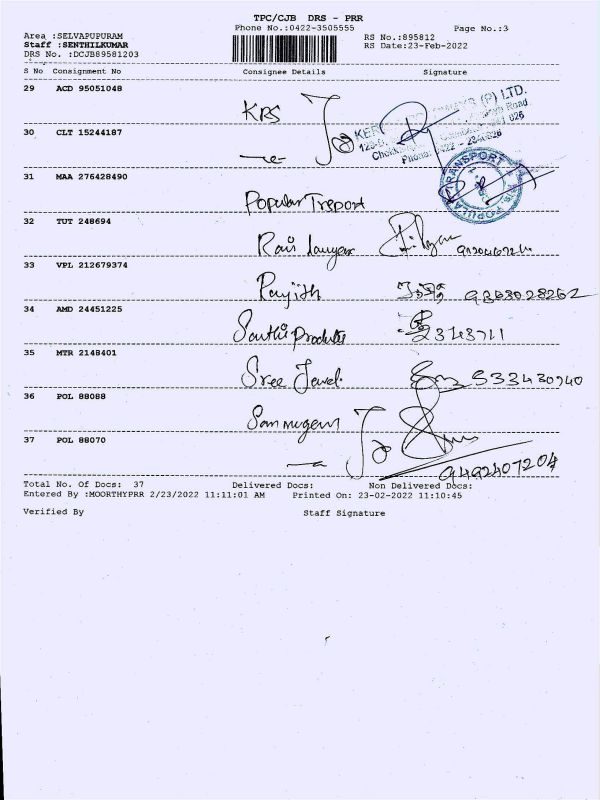 TPC/CJB DRS - PRR
Phone No.:0422-3505555 Page No.:3
Area :SELVAPUPURAM RS No.:895812
Staff :SENTHILKUMAR RS Date:23-Feb-2022
DRS No. :DCJB89581203
S No Consignment No Consignee Details Signature
29 ACD 95051048 KRS
30 CLT 15244187
(P) LTD.
Road
Phone:
31 MAA 276428490 Popular
TRANSPORT
32 TUT 248694 Ravi
33 VPL 212679374 Ranjith 9363028262
34 AMD 24451225 2343711
35 MTR 2148401 Sree Jewel
36 POL 88088
37 POL 88070 9492407204
Total No. Of Docs: 37 Delivered Docs: Non Delivered Docs:
Entered By :MOORTHYPRR 2/23/2022 11:11:01 AM Printed On: 23-02-2022 11:10:45
Verified By Staff Signature